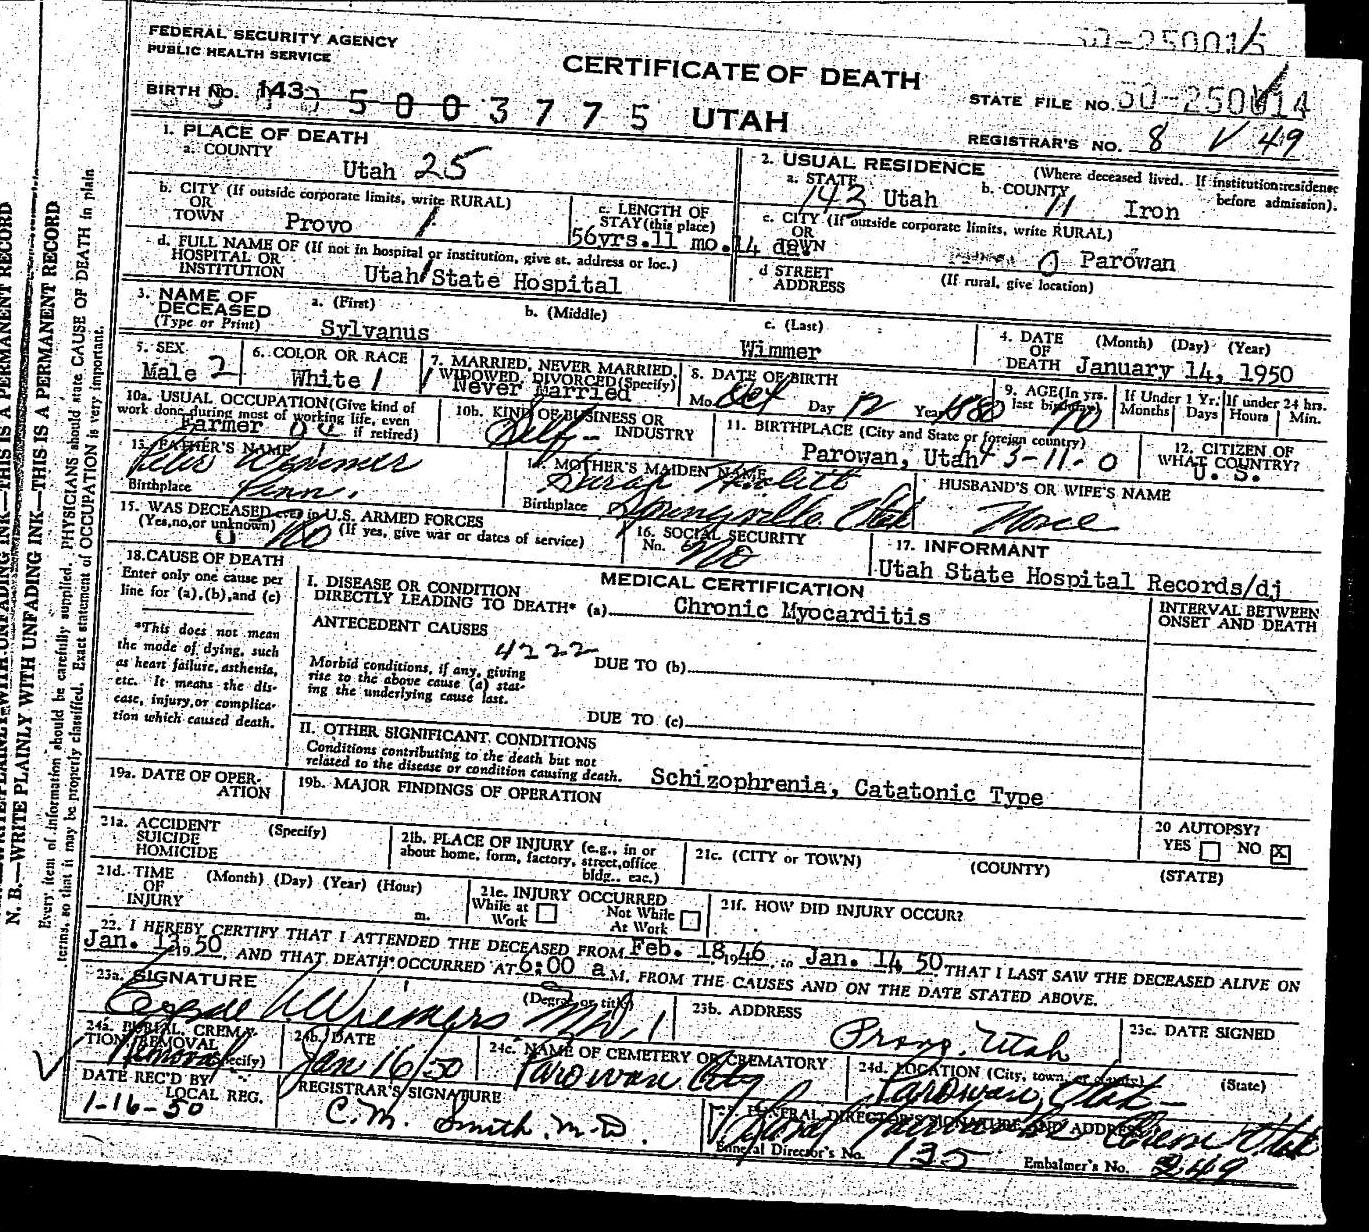 FEDERAL SECURITY AGENCY
PUBLIC HEALTH SERVICE
CERTIFICATE OF DEATH
BIRTH No. 143 5003775 UTAH
STATE FILE NO. 50-250014
REGISTRAR'S NO. 8 V 49
1. PLACE OF DEATH
a. COUNTY
Utah 25
2. USUAL RESIDENCE (Where deceased lived. If institution: residence before admission).
a. STATE 143 Utah b. COUNTY 11 Iron
b. CITY (If outside corporate limits, write RURAL)
OR
TOWN Provo 1
c. LENGTH OF
STAY (this place)
56yrs.11 mo.14 da
c. CITY (If outside corporate limits, write RURAL)
OR
TOWN 0 Parowan
d. FULL NAME OF (If not in hospital or institution, give st. address or loc.)
HOSPITAL OR
INSTITUTION Utah State Hospital
d STREET
ADDRESS (If rural, give location)
3. NAME OF
DECEASED
(Type or Print)
a. (First) b. (Middle) c. (Last)
Sylvanus Wimmer
4. DATE (Month) (Day) (Year)
OF
DEATH January 14, 1950
5. SEX
Male 2
6. COLOR OR RACE
White 1
7. MARRIED, NEVER MARRIED,
WIDOWED, DIVORCED (Specify)
1 Never Married
8. DATE OF BIRTH
Mo. Oct Day 12 Year 1880
9. AGE (In yrs.
last birthday) 70
If Under 1 Yr.
Months Days
If under 24 hrs.
Hours Min.
10a. USUAL OCCUPATION (Give kind of
work done during most of working life, even
if retired)
Farmer
10b. KIND OF BUSINESS OR
INDUSTRY
Self-
11. BIRTHPLACE (City and State or foreign country)
Parowan, Utah 143-11-0
12. CITIZEN OF
WHAT COUNTRY?
U. S.
13. FATHER'S NAME
Wimmer
Birthplace Penn.
14. MOTHER'S MAIDEN NAME
Sarah
Birthplace Springville Utah
HUSBAND'S OR WIFE'S NAME
None
15. WAS DECEASED ever in U.S. ARMED FORCES
(Yes, no, or unknown) (If yes, give war or dates of service)
0 No
16. SOCIAL SECURITY
No. No
17. INFORMANT
Utah State Hospital Records/dj
18. CAUSE OF DEATH
Enter only one cause per
line for (a), (b), and (c)
*This does not mean
the mode of dying, such
as heart failure, asthenia,
etc. It means the dis-
ease, injury, or complica-
tion which caused death.
MEDICAL CERTIFICATION
I. DISEASE OR CONDITION
DIRECTLY LEADING TO DEATH* (a) Chronic Myocarditis
INTERVAL BETWEEN
ONSET AND DEATH
ANTECEDENT CAUSES
4222
Morbid conditions, if any, giving
rise to the above cause (a) stat-
ing the underlying cause last.
DUE TO (b)
DUE TO (c)
II. OTHER SIGNIFICANT CONDITIONS
Conditions contributing to the death but not
related to the disease or condition causing death.
Schizophrenia, Catatonic Type
19a. DATE OF OPER-
ATION
19b. MAJOR FINDINGS OF OPERATION
20 AUTOPSY?
YES NO X
21a. ACCIDENT (Specify)
SUICIDE
HOMICIDE
21b. PLACE OF INJURY (e.g., in or
about home, form, factory, street, office
bldg., eac.)
21c. (CITY or TOWN) (COUNTY) (STATE)
21d. TIME (Month) (Day) (Year) (Hour)
OF
INJURY m.
21e. INJURY OCCURRED
While at
Work
Not While
At Work
21f. HOW DID INJURY OCCUR?
22. I HEREBY CERTIFY THAT I ATTENDED THE DECEASED FROM Feb. 18, 1946, to Jan. 14 50 THAT I LAST SAW THE DECEASED ALIVE ON
Jan. 13, 1950, AND THAT DEATH OCCURRED AT 6:00 a M. FROM THE CAUSES AND ON THE DATE STATED ABOVE.
23a. SIGNATURE (Degree or title)
M.D. 1
23b. ADDRESS
Provo, Utah
23c. DATE SIGNED
24a. BURIAL, CREMA-
TION, REMOVAL
(Specify)
Removal
24b. DATE
Jan 16/50
24c. NAME OF CEMETERY OR CREMATORY
Parowan City
24d. LOCATION (City, town, or county) (State)
Parowan, Utah
DATE REC'D BY
LOCAL REG.
1-16-50
REGISTRAR'S SIGNATURE
C.M. Smith, M.D.
FUNERAL DIRECTOR'S SIGNATURE AND ADDRESS
Orem Utah
Funeral Director's No. 135 Embalmer's No. 249
N. B.—WRITE PLAINLY WITH UNFADING INK—THIS IS A PERMANENT RECORD
Every item of information should be carefully supplied. PHYSICIANS should state CAUSE OF DEATH in plain
terms, so that it may be properly classified. Exact statement of OCCUPATION is very important.